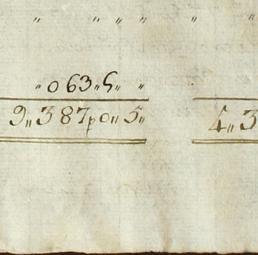 " " " " " "
"063"5" "
9"387p0"5" 4"3